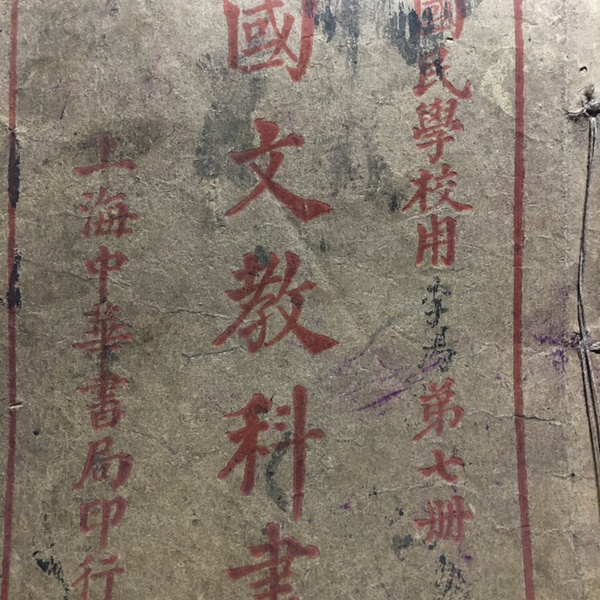 國民學校用 第七冊
國文教科書
上海中華書局印行